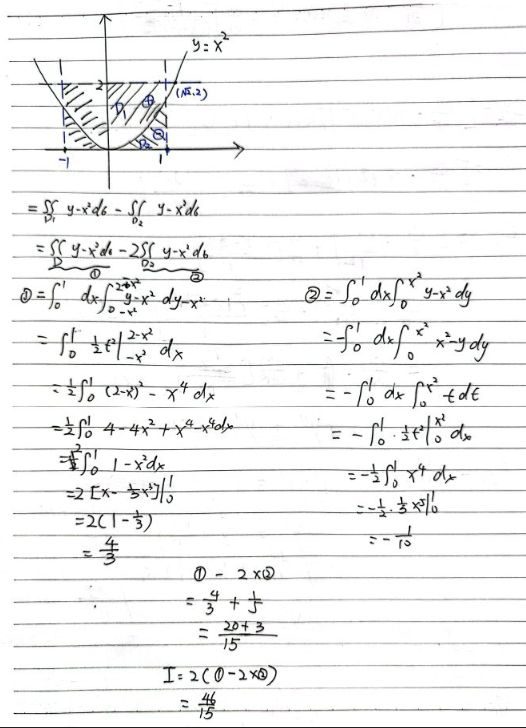 y=x²
2
(√2.2)
D₁ ⊕
D₂ ⊖
-1 1
=∬_{D₁} y-x²dσ - ∬_{D₂} y-x²dσ
=∬_{D} y-x²dσ - 2∬_{D₂} y-x²dσ
① ②
①=∫₀¹ dx∫_{-x²}^{2-x²} y-x² dy-x²
=∫₀¹ ½t²|_{-x²}^{2-x²} dx
=½∫₀¹ (2-x)² - x⁴ dx
=½∫₀¹ 4-4x²+x⁴-x⁴dx
=2∫₀¹ 1-x²dx
=2[x-⅓x³]|₀¹
=2(1-⅓)
=4/3
②=∫₀¹ dx∫₀^{x²} y-x² dy
=-∫₀¹ dx∫₀^{x²} x²-y dy
=-∫₀¹ dx ∫₀^{x²} t dt
=-∫₀¹ · ½t²|₀^{x²} dx
=-½∫₀¹ x⁴ dx
=-½·⅕x⁵|₀¹
=-1/10
① - 2×②
=4/3 + 1/5
=20+3/15
I=2(①-2×②)
=46/15